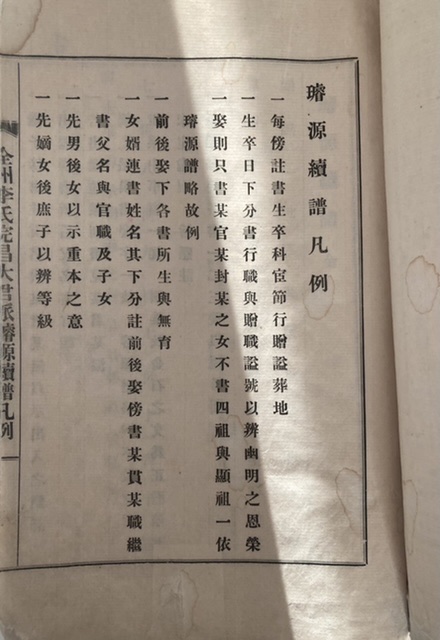 璿源續譜凡例
一每傍註書生卒科宦節行贈謚葬地
一生卒日下分書行職與贈職謚號以辨幽明之恩榮
一娶則只書某官某封某之女不書四祖與顯祖一依
璿源譜略故例
一前後娶下各書所生與無育
一女婿連書姓名其下分註前後娶傍書某貫某職繼
書父名與官職及子女
一先男後女以示重本之意
一先嫡女後庶子以辨等級
全州李氏完昌大君派璿源續譜凡例 一